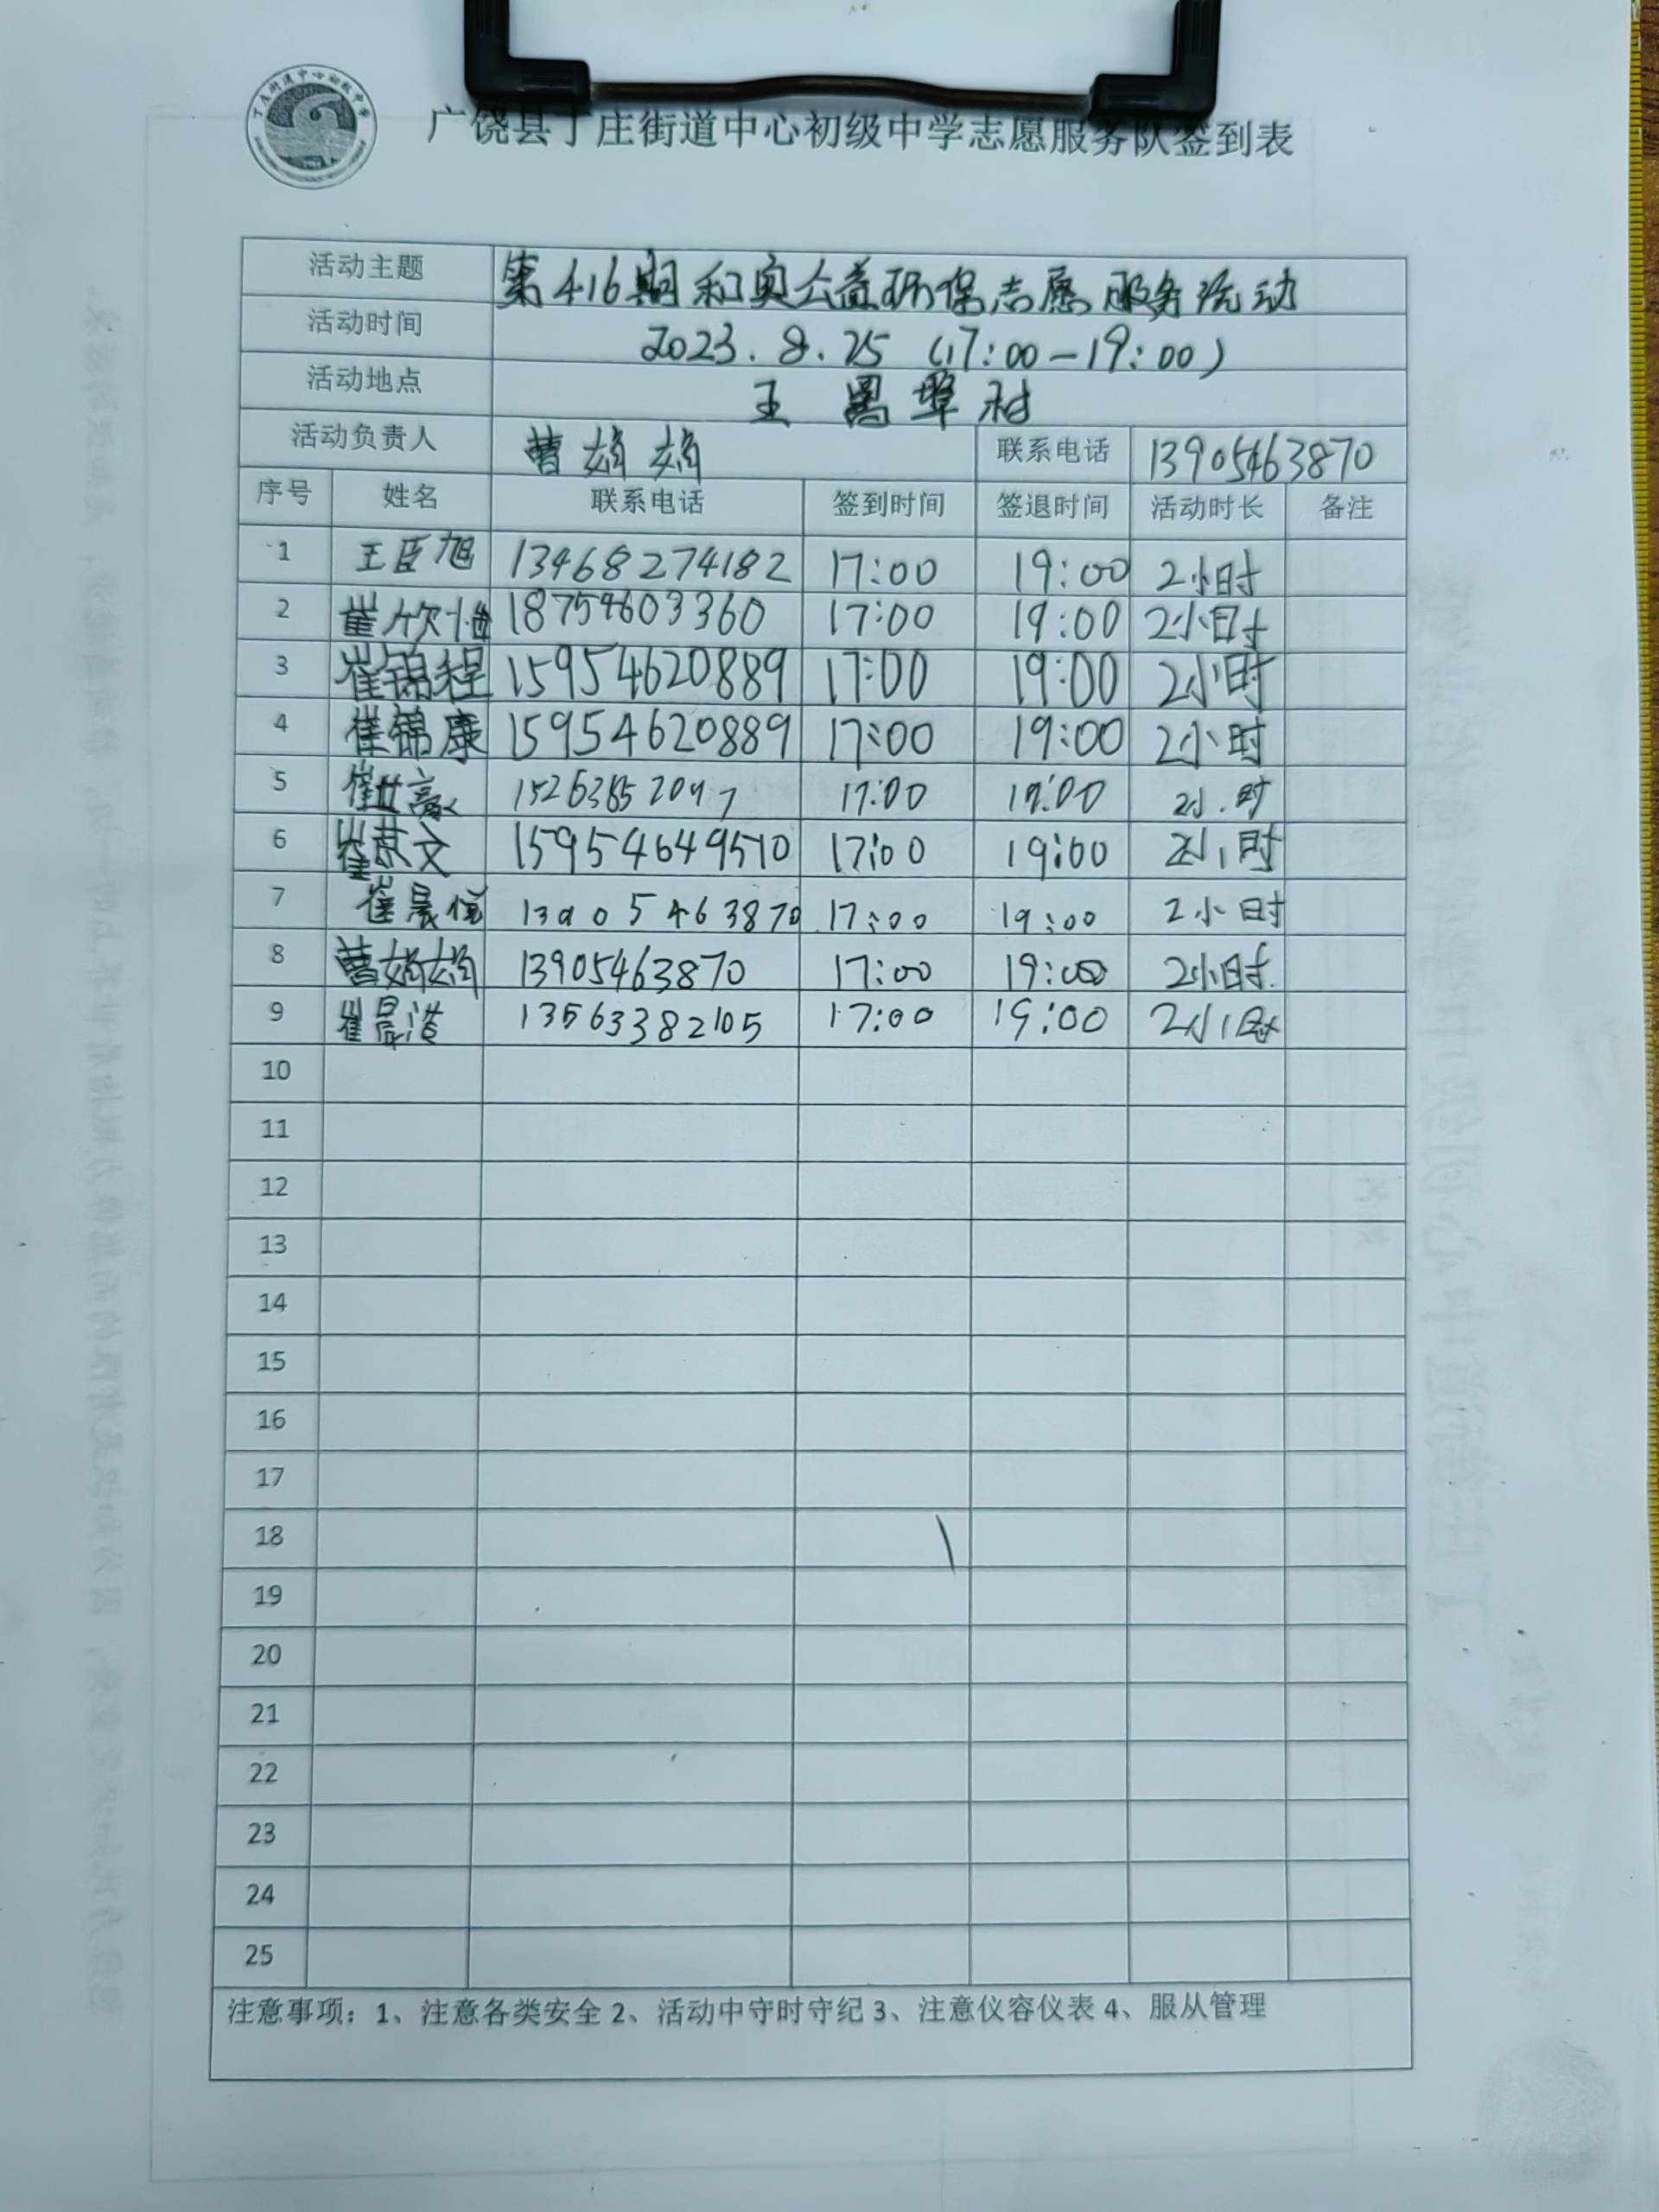 广饶县丁庄街道中心初级中学志愿服务队签到表
活动主题 第416期和奥公益环保志愿服务活动
活动时间 2023.8.25 (17:00-19:00)
活动地点 王 署 埠 村
活动负责人 曹娟娟 联系电话 13905463870
序号 姓名 联系电话 签到时间 签退时间 活动时长 备注
1 王臣旭 13468274182 17:00 19:00 2小时
2 崔欣怡 18754603360 17:00 19:00 2小时
3 崔锦程 15954620889 17:00 19:00 2小时
4 崔锦康 15954620889 17:00 19:00 2小时
5 17:00 19:00 2小时
6 崔景文 15954649570 17:00 19:00 2小时
7 崔晨恒 13905463870 17:00 19:00 2小时
8 曹娟娟 13905463870 17:00 19:00 2小时
9 崔晨浩 13563382105 17:00 19:00 2小时
10
11
12
13
14
15
16
17
18
19
20
21
22
23
24
25
注意事项：1、注意各类安全 2、活动中守时守纪 3、注意仪容仪表 4、服从管理